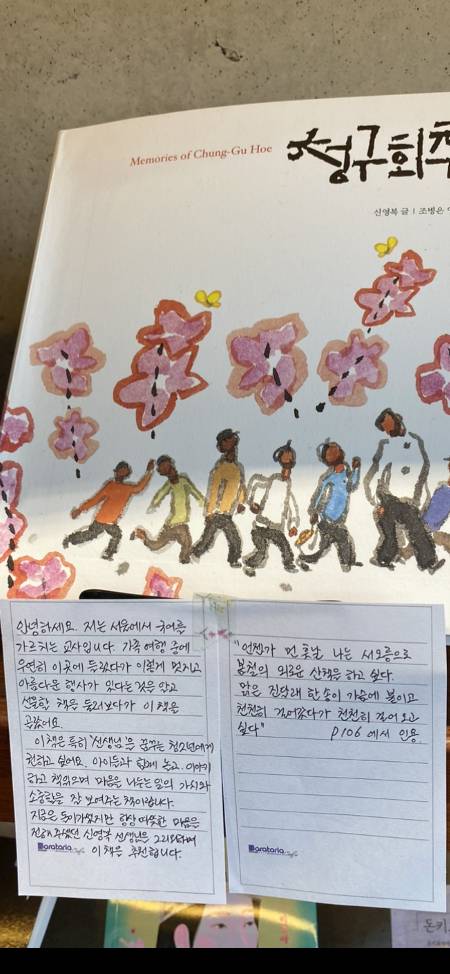 Memories of Chung-Gu Hoe
청구회 추
신영복 글 | 조병은
안녕하세요. 저는 서울에서 국어를
가르치는 교사입니다. 가족 여행 중에
우연히 이곳에 들렀다가 이렇게 멋지고
아름다운 행사가 있다는 것을 알고
선물할 책을 둘러보다가 이 책을
골랐어요.
이 책은 특히 '선생님'을 꿈꾸는 청소년에게
권하고 싶어요. 아이들과 함께 놀고, 이야기
하고 책 읽으며 마음을 나누는 일의 가치와
소중함을 잘 보여주는 책이랍니다.
지금은 돌아가셨지만 항상 따뜻한 마음을
전해 주셨던 신영복 선생님을 그리워하며
이 책을 추천합니다.
oratorio
"언젠가 먼 훗날 나는 서오릉으로
봄철의 외로운 산책을 하고 싶다.
맑은 진달래 한 송이 가슴에 붙이고
천천히 걸어갔다가 천천히 걸어 오고
싶다"
p106 에서 인용.
oratorio
돈키